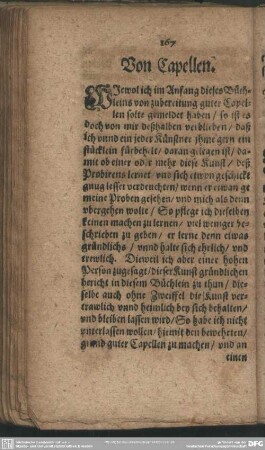 167
Von Capellen.
WJewol ich im Anfang dieses Büch-
leins von zubereitung guter Capel-
len solte gemeldet haben / so ist es
doch von mir deßhalben verblieben / daß
ich vnnd ein jeder Künstner jhme gern ein
stücklein fürbehelt / daran gelegen ist / da-
mit ob einer oder mehr diese Kunst / deß
Probirens lernet / vnd sich etwan geschickt
gnug lesset verdeuchten / wenn er etwan ge
meine Proben gesehen / vnd mich als denn
vbergehen wolte / So pflege ich dieselben
keinen machen zu lernen / viel weniger be-
schrieben zu geben / er lerne denn etwas
gründlichs / vnnd halte sich ehrlich / vnd
trewlich. Dieweil ich aber einer hohen
Person zugesagt / dieser Kunst gründlichen
bericht in diesem Büchlein zu thun / die-
selbe auch ohne Zweiffel die Kunst ver-
trawlich vnnd heimlich bey sich behalten /
vnd bleiben lassen wird / So habe ich nicht
vnterlassen wollen / hiemit den bewehrten /
grund guter Capellen zu machen / vnd an
einen